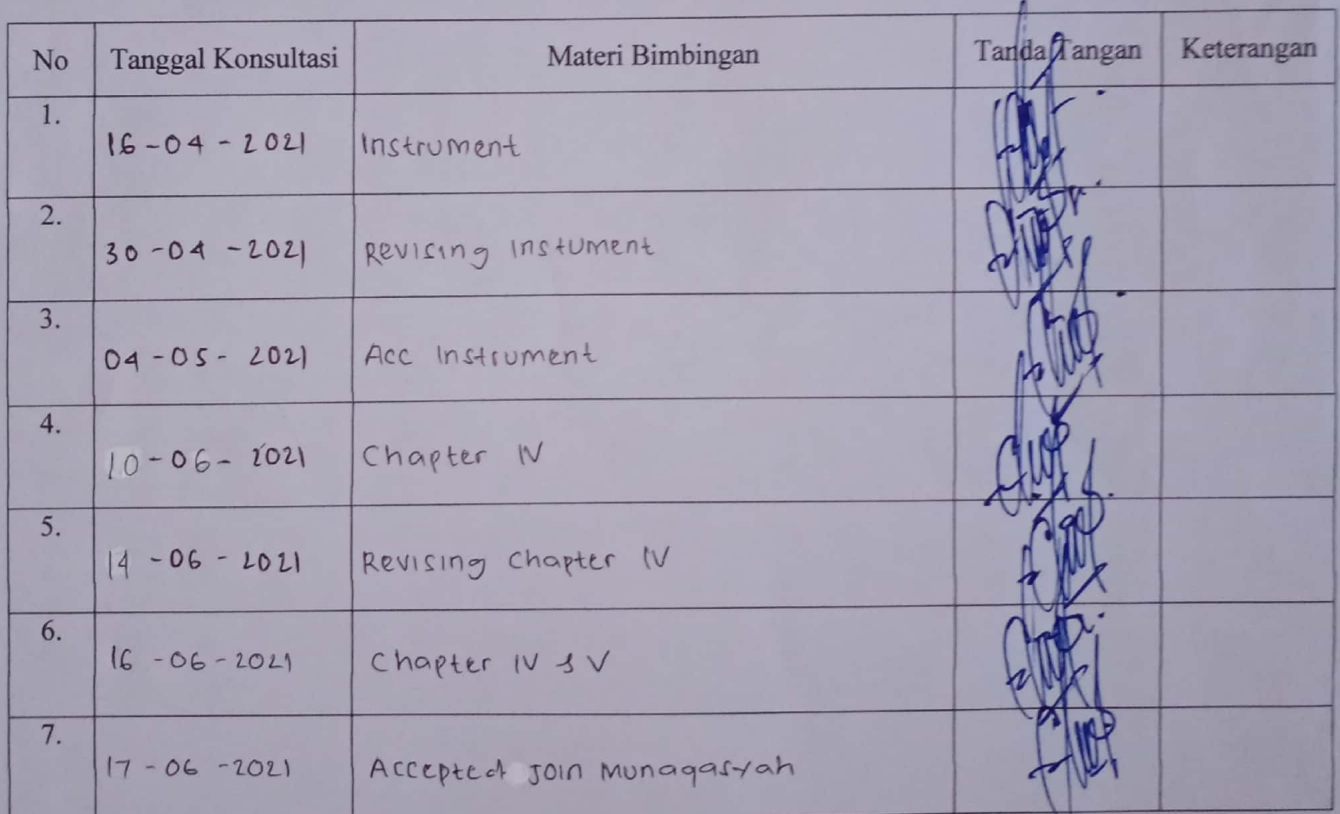 No Tanggal Konsultasi Materi Bimbingan Tanda Tangan Keterangan
1. 16-04-2021 Instrument
2. 30-04-2021 Revising Instument
3. 04-05-2021 Acc Instrument
4. 10-06-2021 Chapter IV
5. 14-06-2021 Revising Chapter IV
6. 16-06-2021 Chapter IV & V
7. 17-06-2021 Accepted Join Munaqasyah